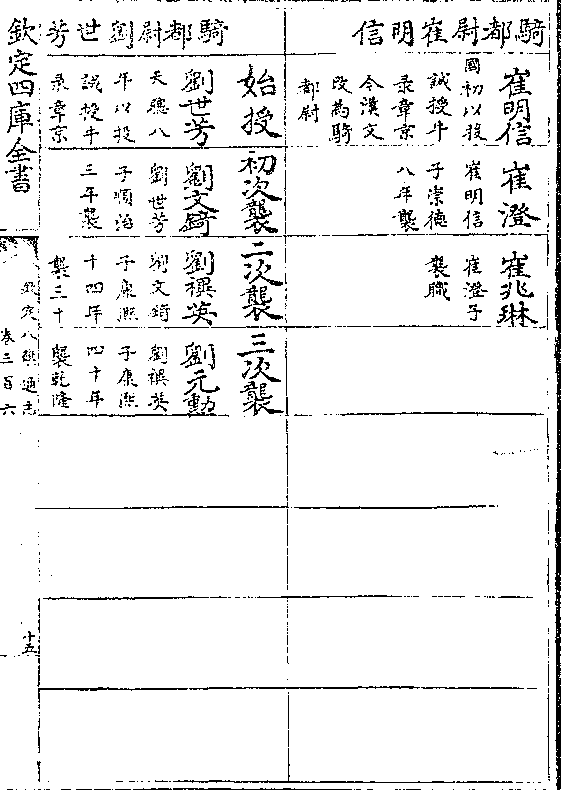 騎都尉崔明信
崔明信
國初以投
誠授牛
录章京
今漢文
改為騎
都尉
崔澄
崔明信
子崇德
八年襲
崔兆琳
崔澄子
襲職
騎都尉劉世芳
始授
劉世芳
天聰八
年以投
誠授牛
录章京
初次襲
劉文錡
劉世芳
子順治
三年襲
二次襲
劉禩英
劉文錡
子康熙
十四年
襲三十
三次襲
劉元勳
劉禩英
子康熙
四十年
襲乾隆
欽定四庫全書
欽定八旗通志
卷三百六
十五